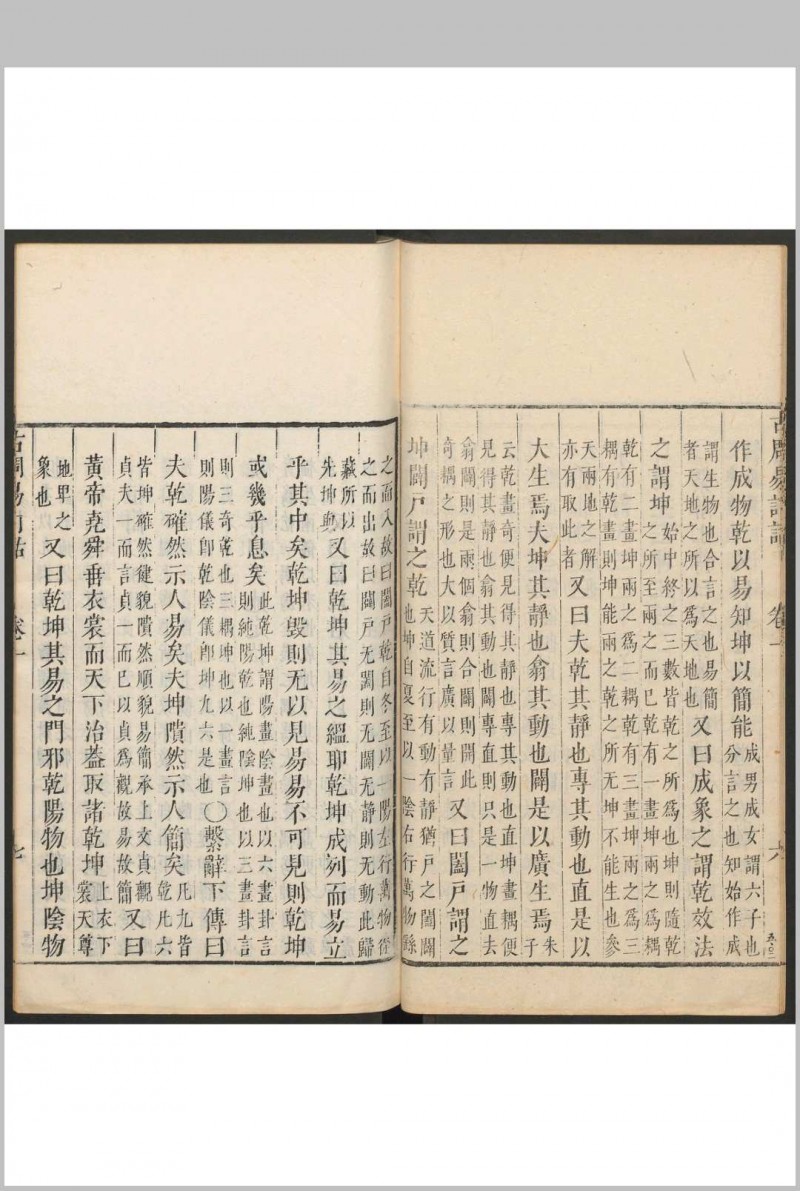 古周易訂詁 卷一 六
作成物乾以易知坤以簡能 成男成女謂六子也 分言之也知始作成
謂生物也合言之也易簡 者天地之所以爲天地也 又曰成象之謂乾效法
之謂坤 始中終之三數皆乾之所爲也坤則隨乾 之所至兩之而已乾有一畫坤兩之爲耦
乾有二畫坤兩之爲二耦乾有三畫坤兩之爲三 耦有乾畫則坤能兩之乾之所无坤不能生也參
天兩地之解 亦有取此者 又曰夫乾其靜也專其動也直是以
大生焉夫坤其靜也翕其動也闢是以廣生焉 朱 子
云乾畫奇便見得其靜也專其動也直坤畫耦便 見得其靜也翕其動也闢專直則只是一物直去
翕闢則是兩個翕則合闢則開此 奇耦之形也大以質言廣以量言 又曰闔戶謂之
坤闢戶謂之乾 天道流行有動有靜猶戶之闔闢 也坤自夏至以一陰右行萬物繇
之而入故曰闔戶乾自冬至以一陽左行萬物從 之而出故曰闢戶无闔則无闢无靜則无動此歸
藏所以 先坤與 又曰乾坤其易之縕耶乾坤成列而易立
乎其中矣乾坤毀則无以見易易不可見則乾坤
或幾乎息矣 此乾坤謂陽畫陰畫也以六畫卦言 則純陽乾也純陰坤也以三畫卦言
則三奇乾也三耦坤也以一畫言 則陽儀即乾陰儀即坤九六是也 〇繫辭下傳曰
夫乾確然示人易矣夫坤隤然示人簡矣 凡九皆 乾凡六
皆坤確然健貌隤然順貌易簡承上文貞觀 貞夫一而言貞一而已以貞爲觀故易故簡 又曰
黃帝堯舜垂衣裳而天下治蓋取諸乾坤 上衣下 裳天尊
地卑之 象也 又曰乾坤其易之門邪乾陽物也坤陰物
古周易訂詁 卷一 七